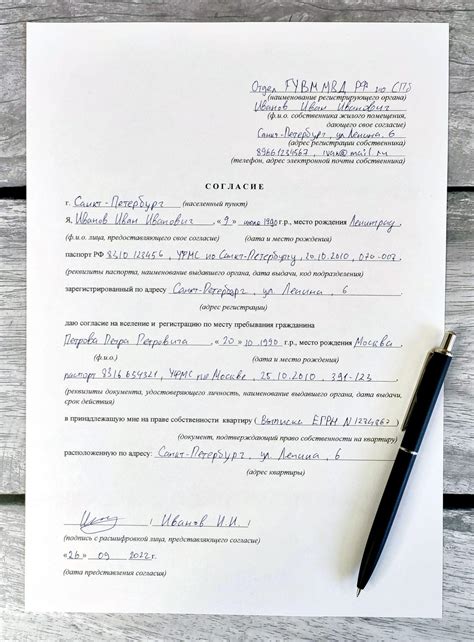 Отдел ГУВМ МВД РФ по СПб
(наименование регистрирующего органа)
Иванов Иван Иванович
(ф.и.о. собственника жилого помещения,
дающего свое согласие)
Санкт-Петербург, ул Ленина, 6
(адрес регистрации собственника)
89661234567, ivan@mail.ru
(телефон, адрес электронной почты собственника)
СОГЛАСИЕ
г. Санкт-Петербург (населенный пункт)
Я, Иванов Иван Иванович, «9» июля 1990 г.р., место рождения Ленинград,
(ф.и.о. лица, предоставляющего свое согласие) (дата и место рождения)
паспорт РФ 8310 123456, УФМС по Санкт-Петербургу, 20.10.2010, 070-007,
(реквизиты паспорта, наименование выдавшего органа, дата выдачи, код подразделения)
зарегистрированный по адресу Санкт-Петербург, ул. Ленина, 6,
(адрес регистрации)
даю согласие на вселение и регистрацию по месту пребывания гражданина
Петрова Петра Петровича, «20» 10 1990 г.р., место рождения Москва,
(ф.и.о.) (дата и место рождения)
паспорт 8316 654321, УФМС по Москве, 25.10.2010, 391-123,
(реквизиты документа, удостоверяющего личность, наименование выдавшего органа, дата выдачи,
срок действия)
в принадлежащую мне на праве собственности квартиру (Выписка ЕГРН N 1234567)
(документ, подтверждающий право собственности на квартиру)
расположенную по адресу: Санкт-Петербург, ул Ленина, 6
(адрес квартиры)
/ Иванов И.И. /
(подпись с расшифровкой лица, представляющего согласие)
«26» 09 2022 г.
(дата представления согласия)